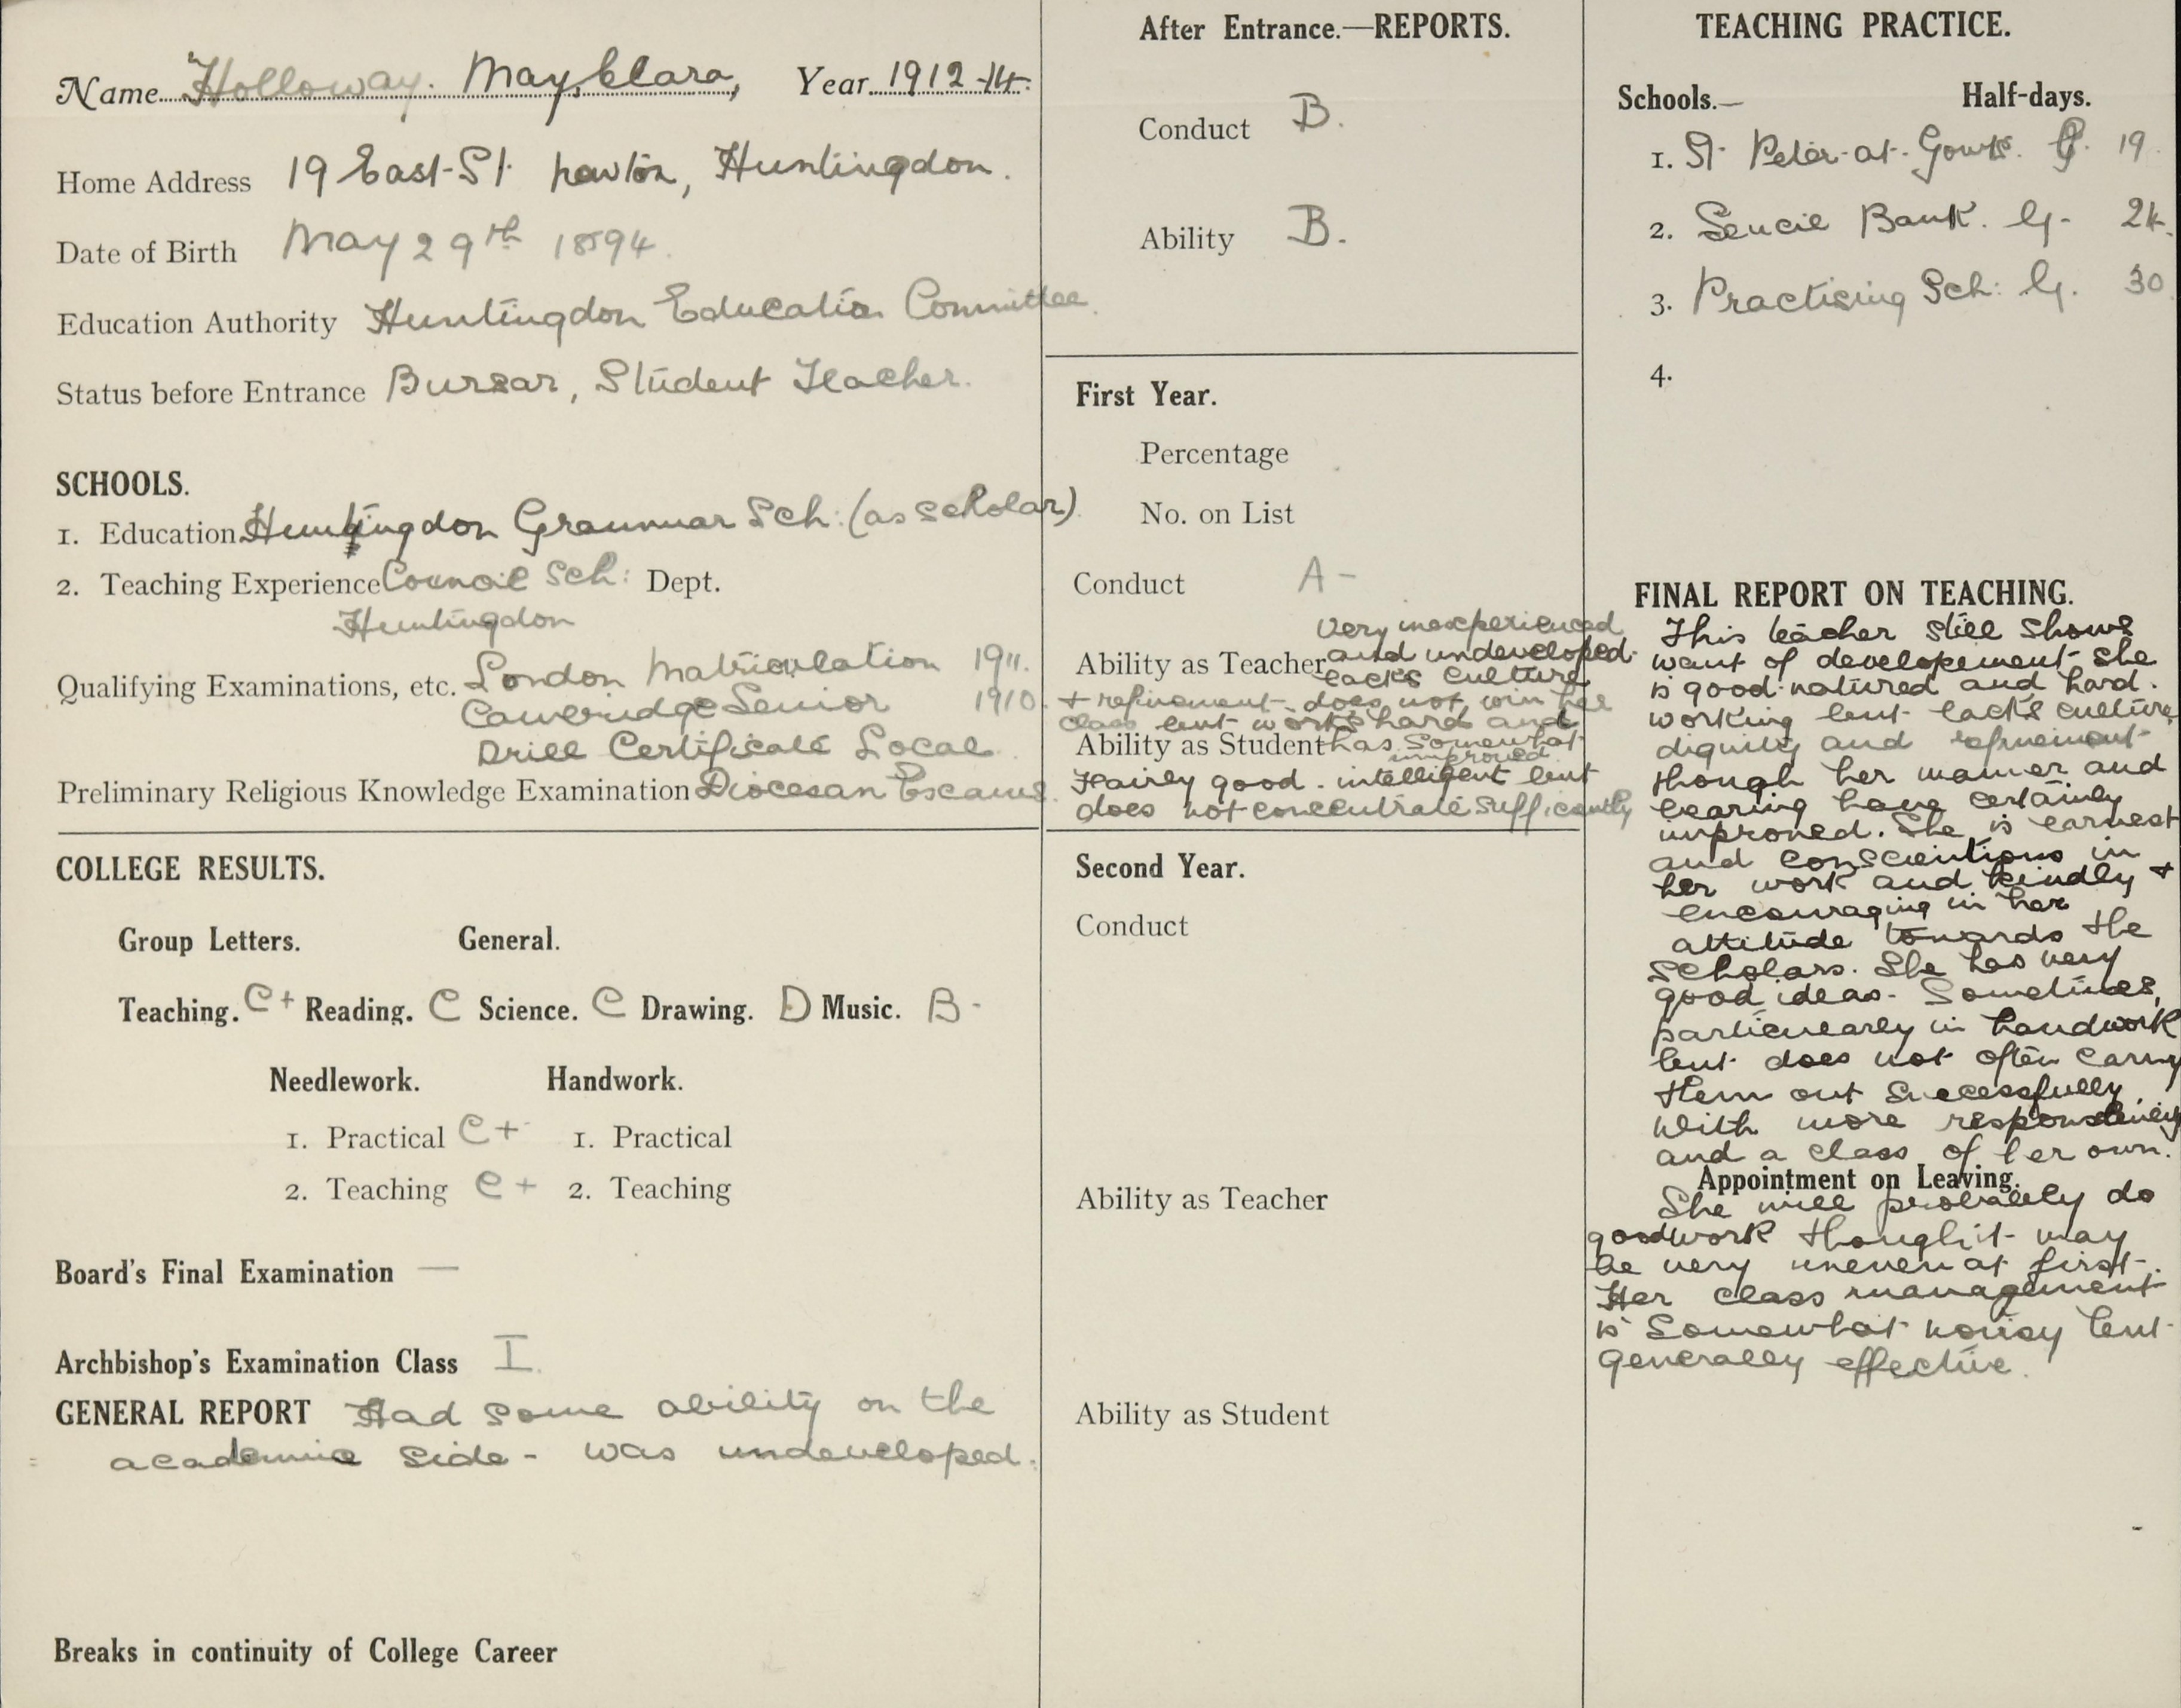 Name Holloway. May, Clara, Year 1912-14.
Home Address 19 East-St. Newton, Huntingdon.
Date of Birth May 29th 1894.
Education Authority Huntingdon Education Committee.
Status before Entrance Bursar, Student Teacher.
SCHOOLS.
1. Education Huntingdon Grammar Sch: (as scholar).
2. Teaching Experience Council Sch: Dept.
Huntingdon
Qualifying Examinations, etc. London Matriculation 1911.
Cambridge Senior 1910.
Drill Certificate Local.
Preliminary Religious Knowledge Examination Diocesan Exams.
COLLEGE RESULTS.
Group Letters. General.
Teaching. C+ Reading. C Science. C Drawing. D Music. B-
Needlework. Handwork.
1. Practical C+ 1. Practical
2. Teaching C+ 2. Teaching
Board's Final Examination —
Archbishop's Examination Class I.
GENERAL REPORT Had some ability on the
academic side - was undeveloped.
Breaks in continuity of College Career
After Entrance.—REPORTS.
Conduct B.
Ability B.
First Year.
Percentage
No. on List
Conduct A-
Very inexperienced
Ability as Teacher and undeveloped.
lacks culture
+ refinement - does not win her
class but works hard and
Ability as Student has somewhat
improved.
Fairly good - intelligent but
does not concentrate sufficiently
Second Year.
Conduct
Ability as Teacher
Ability as Student
TEACHING PRACTICE.
Schools.— Half-days.
1. St. Peter-at-Gowts. G. 19.
2. Sencil Bank. G. 24.
3. Practising Sch: G. 30.
4.
FINAL REPORT ON TEACHING.
This teacher still shows
want of developement - she
is good-natured and hard-
working but lacks culture
dignity and refinement
though her manner and
bearing have certainly
improved. She is earnest
and conscientious in
her work and kindly +
encouraging in her
attitude towards the
scholars. She has very
good ideas - sometimes,
particularly in handwork
but does not often carry
them out successfully.
With more responsibility
and a class of her own.
Appointment on Leaving.
She will probably do
good work though it may
be very uneven at first.
Her class management
is somewhat noisy but
generally effective.